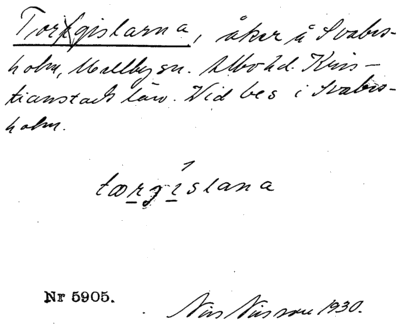 Torsgislarna, åker å Svabes-
holm, Mellby sn. Albo hd. Kris-
tianstads län. Vid bes i Svabes-
holm.
tœrgislana
Nr 5905.
Nils Nilsson 1930.